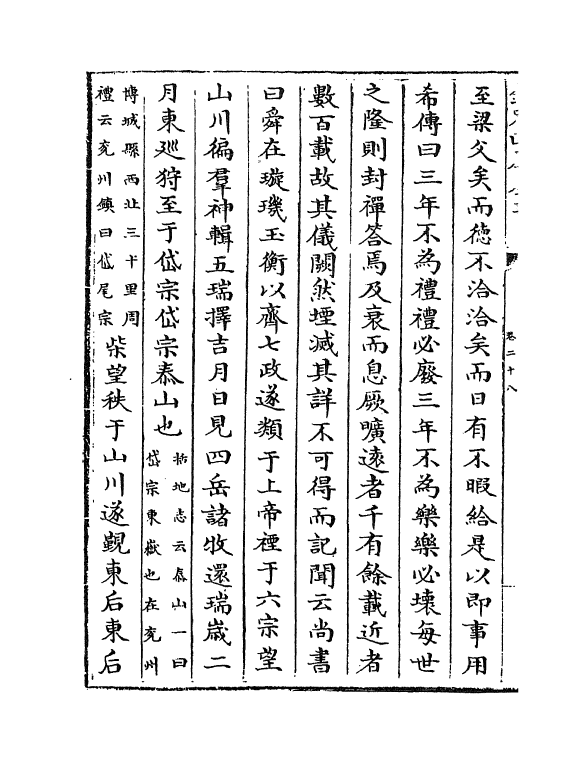 卷二十八
至梁父矣而徳不洽洽矣而日有不暇給是以即事用
希傳曰三年不為禮禮必廢三年不為樂樂必壞每世
之隆則封禪答焉及衰而息厥曠逺者千有餘載近者
數百載故其儀闕然堙滅其詳不可得而記聞云尚書
曰舜在璇璣玉衡以齊七政遂類于上帝禋于六宗望
山川徧羣神輯五瑞擇吉月日見四岳諸牧還瑞嵗二
月東廵狩至于岱宗岱宗泰山也
括地志云㤗山一曰
岱宗東嶽也在兖州
博城縣西北三十里周
禮云兖州鎮曰岱尾宗
柴望秩于山川遂覲東后東后